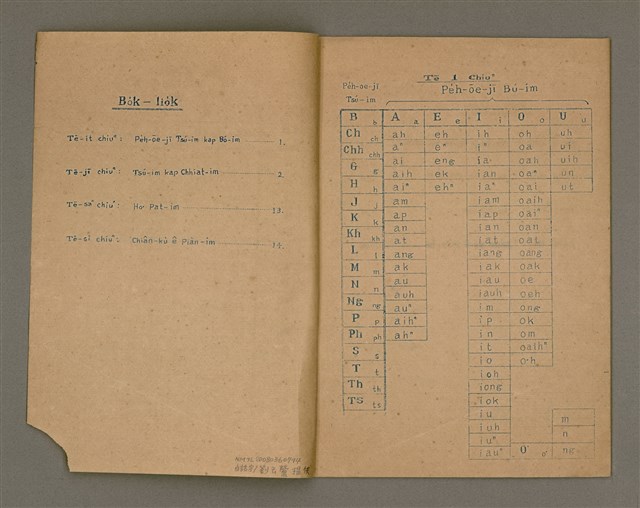 Bo̍k-lio̍k
Tē-it chiuⁿ: Pe̍h-ōe-jī Tsó͘-im kap Bó͘-im 1.
Tē-jī chiuⁿ: Tsó͘-im kap Chhiat-im 2.
Tē-saⁿ chiuⁿ: Hō͘ Pat-im 13.
Tē-sì chiuⁿ: Chiân-kù ê Piàn-im 14.
Tē 1 Chiuⁿ
Pe̍h-ōe-jī Tsó͘-im
Pe̍h-ōe-jī Bó͘-im
B b A a E e I i O o U u
Ch ch ah eh ih oh uh
Chh chh aⁿ eⁿ iⁿ oa ui
G g ai eng ia oah uih
H h aih ek ian oaⁿ un
J j aiⁿ ehⁿ iaⁿ oai ut
K k am iam oaih
Kh kh ap iap oaiⁿ
L l an ian oan
M m at iat oat
N n ang iang oang
Ng ng ak iak oak
P p au iau oe
Ph ph auh iauh oeh
S s auⁿ im ong
T t aihⁿ ip ok
Th th ahⁿ in om
TS ts it oaihⁿ
io o·h
ioh
iong
iok
iu m
iuh n
iuⁿ ng
iauⁿ O͘ o͘